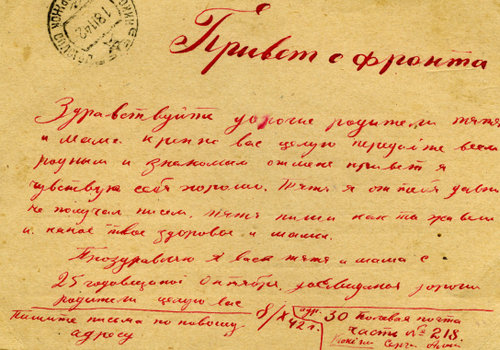 18 11 42
Привет с фронта
Здравствуйте дорогие родители тятя
и мама крепко вас целую передайте всем
родным и знакомым от меня привет я
чувствую себя хорошо. Тятя я от тебя давно
не получал писем, тятя пиши как ты живеш
и какое твое здоровье и мамы.
Проздравляю я вас тятя и мама с
25 годовщиной Октября, досвидания дорогие
родители целую вас
8/X 42 г.
Пишите письма по новому
адресу
30 Полевая почта
часть № 218